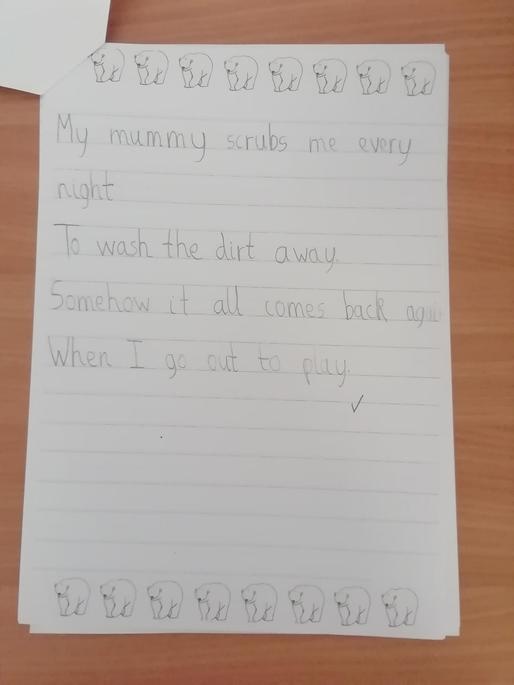 My mummy scrubs me every
night
To wash the dirt away.
Somehow it all comes back again
When I go out to play.